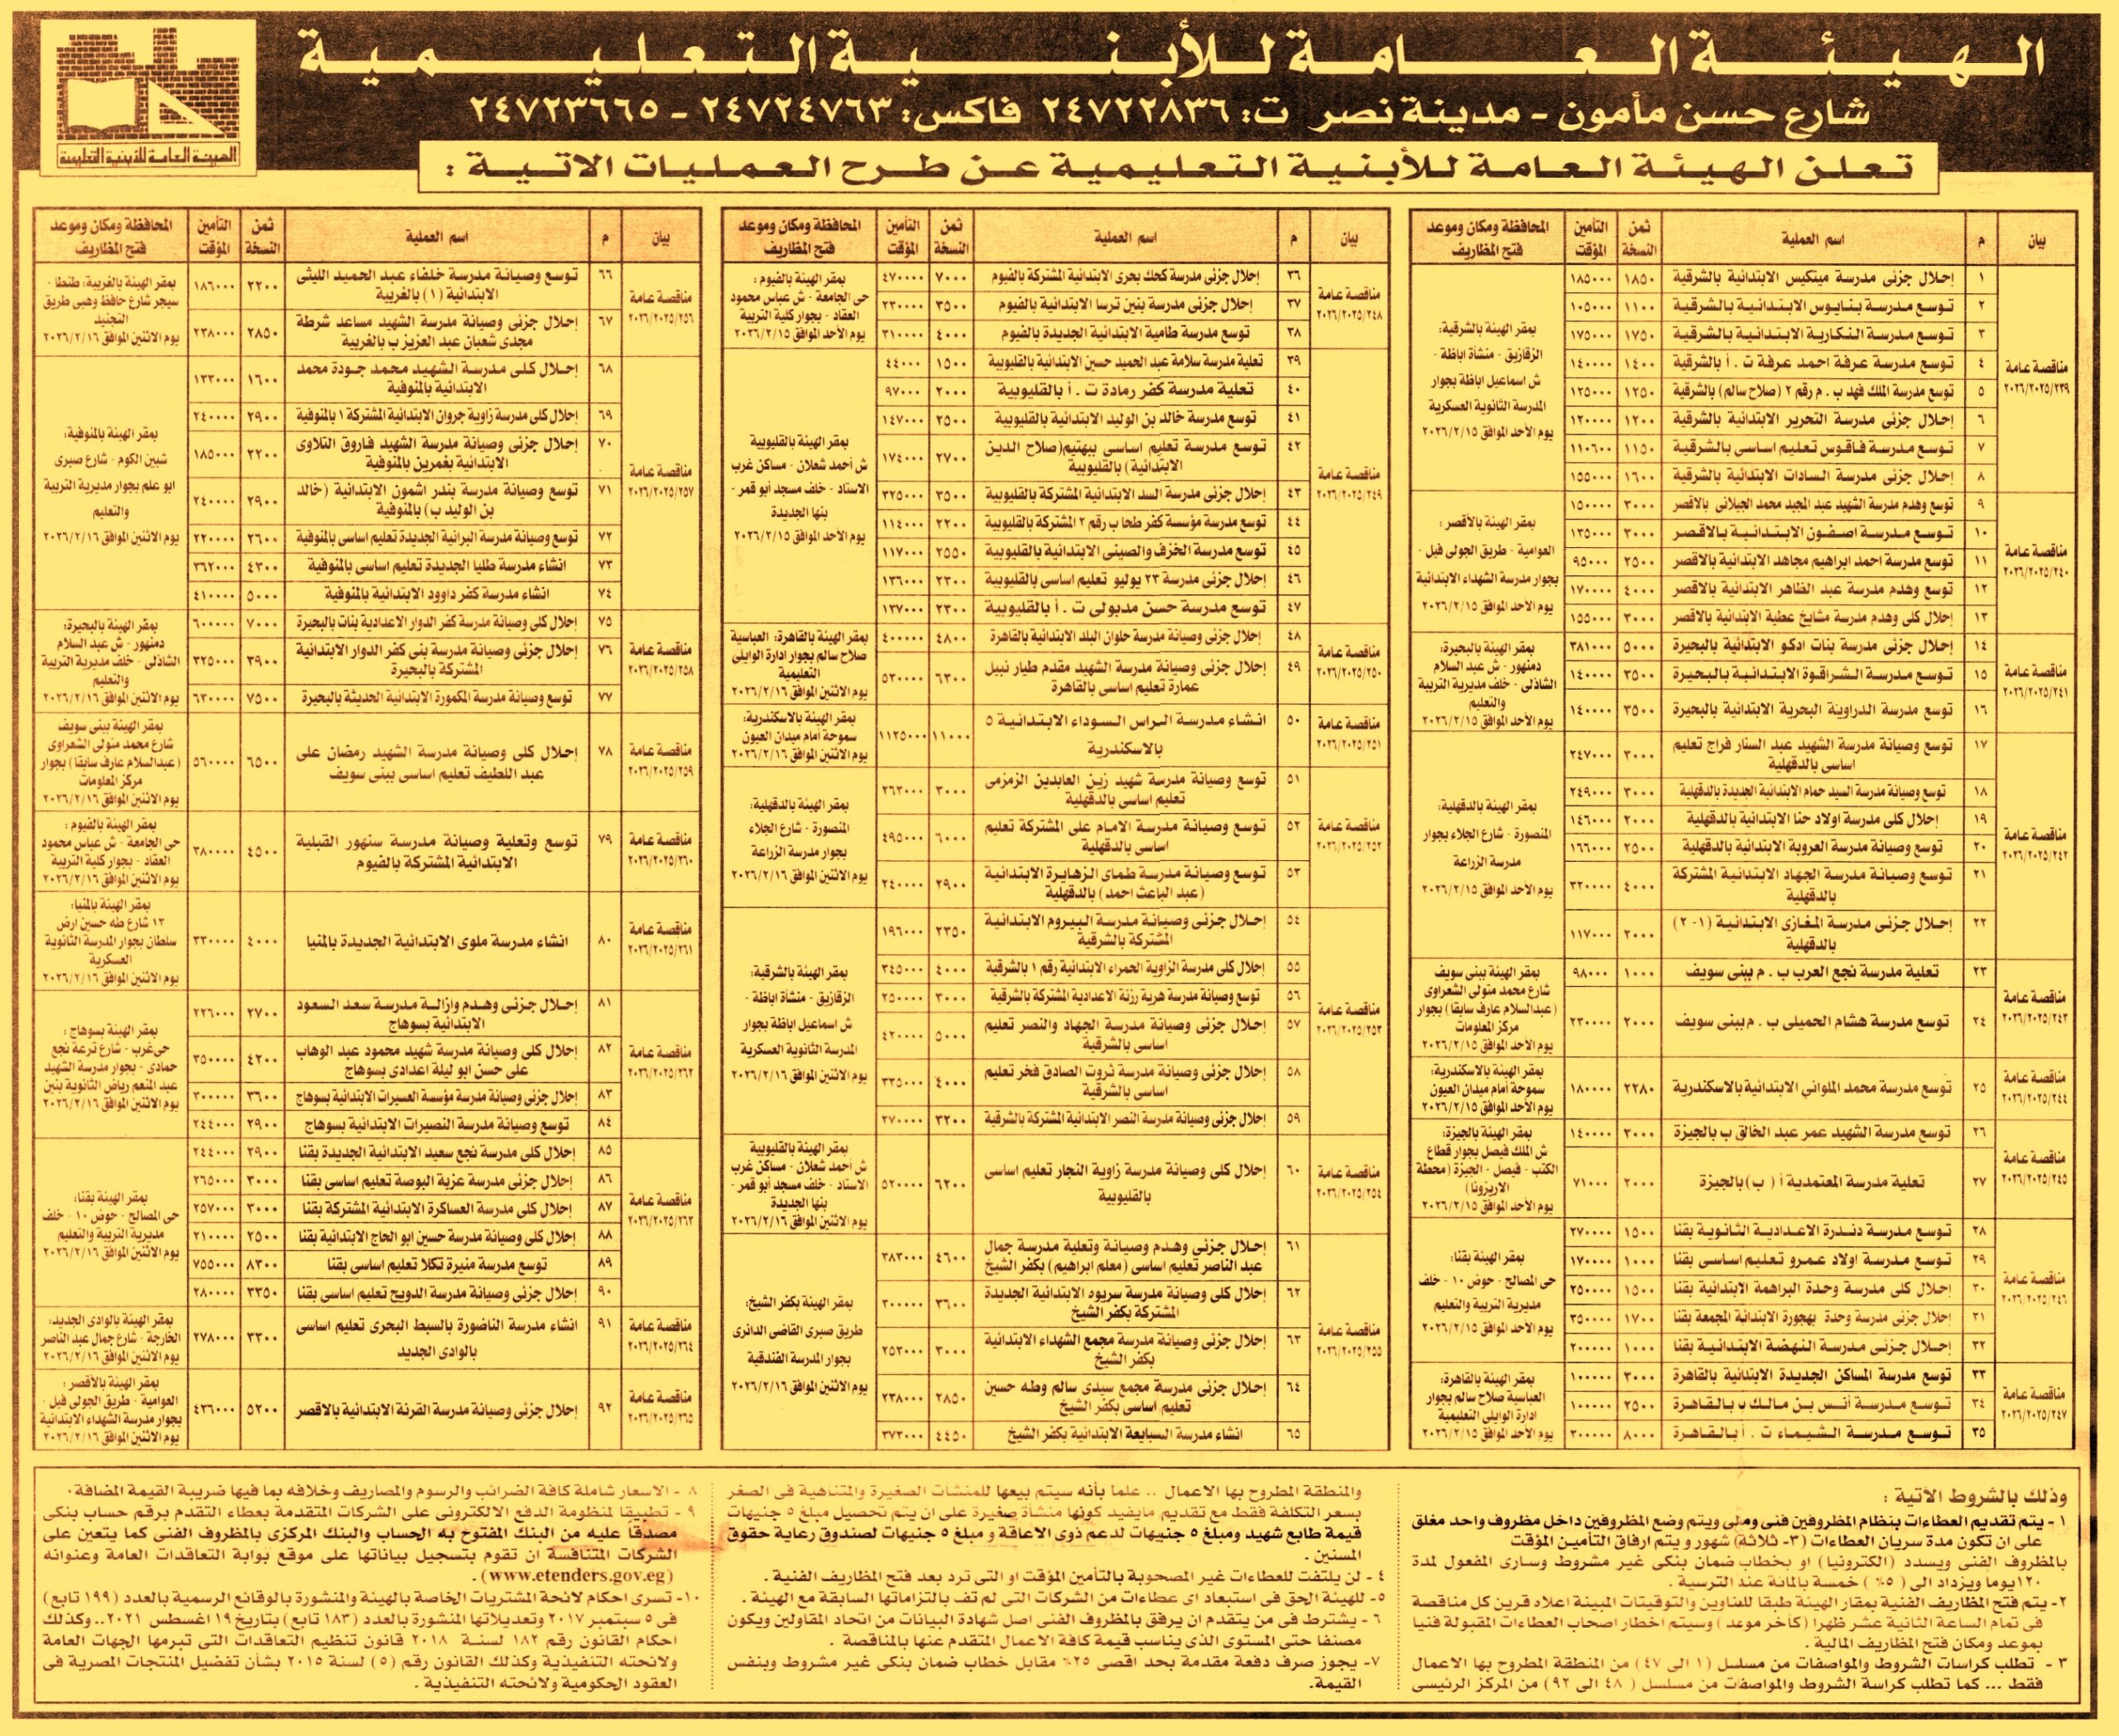 الهيئة العامة للأبنية التعليمية
شارع حسن مأمون - مدينة نصر ت: ٢٤٧٢٢٨٣٦ فاكس: ٢٤٧٢٤٧٦٣ - ٢٤٧٢٣٦٦٥
الهيئة العامة للأبنية التعليمية
تعلن الهيئة العامة للأبنية التعليمية عن طرح العمليات الاتية :
بيان م اسم العملية ثمن النسخة التأمين المؤقت المحافظة ومكان وموعد فتح المظاريف
مناقصة عامة ٢٠٢٦/٢٠٢٥/٢٣٩
١ إحلال جزئى مدرسة ميتكيس الابتدائية بالشرقية ١٨٥٠ ١٨٥٠٠٠
٢ توسع مدرسة بنايوس الابتدائية بالشرقية ١١٠٠ ١٠٥٠٠٠
٣ توسع مدرسة النكارية الابتدائية بالشرقية ١٧٥٠ ١٧٥٠٠٠
٤ توسع مدرسة عرفة احمد عرفة ت . أ بالشرقية ١٤٠٠ ١٤٠٠٠٠
٥ توسع مدرسة الملك فهد ب . م رقم ٢ (صلاح سالم) بالشرقية ١٢٥٠ ١٢٥٠٠٠
٦ إحلال جزئى مدرسة التحرير الابتدائية بالشرقية ١٢٠٠ ١٢٠٠٠٠
٧ توسع مدرسة فاقوس تعليم اساسى بالشرقية ١١٥٠ ١١٠٦٠٠
٨ إحلال جزئى مدرسة السادات الابتدائية بالشرقية ١٦٠٠ ١٥٥٠٠٠
بمقر الهيئة بالشرقية:
الزقازيق - منشأة اباظة -
ش اسماعيل اباظة بجوار
المدرسة الثانوية العسكرية
يوم الأحد الموافق ٢٠٢٦/٢/١٥
مناقصة عامة ٢٠٢٦/٢٠٢٥/٢٤٠
٩ توسع وهدم مدرسة الشهيد عبد المجيد محمد الجيلانى بالاقصر ٣٠٠٠ ١٥٠٠٠٠
١٠ توسع مدرسة اصفون الابتدائية بالاقصر ٣٠٠٠ ١٣٥٠٠٠
١١ توسع مدرسة احمد ابراهيم مجاهد الابتدائية بالاقصر ٢٥٠٠ ٩٥٠٠٠
١٢ توسع وهدم مدرسة عبد الظاهر الابتدائية بالاقصر ٤٠٠٠ ١٧٠٠٠٠
١٣ إحلال كلى وهدم مدرسة مشايخ عطية الابتدائية بالاقصر ٣٠٠٠ ١٥٥٠٠٠
بمقر الهيئة بالأقصر:
العوامية - طريق الجولى فيل -
بجوار مدرسة الشهداء الابتدائية
يوم الأحد الموافق ٢٠٢٦/٢/١٥
مناقصة عامة ٢٠٢٦/٢٠٢٥/٢٤١
١٤ إحلال جزئى مدرسة بنات ادكو الابتدائية بالبحيرة ٥٠٠٠ ٣٨١٠٠٠
١٥ توسع مدرسة الشراقوة الابتدائية بالبحيرة ٣٥٠٠ ١٤٠٠٠٠
١٦ توسع مدرسة الدراوية البحرية الابتدائية بالبحيرة ٣٥٠٠ ١٤٠٠٠٠
بمقر الهيئة بالبحيرة:
دمنهور - ش عبد السلام
الشاذلى - خلف مديرية التربية
والتعليم
يوم الأحد الموافق ٢٠٢٦/٢/١٥
مناقصة عامة ٢٠٢٦/٢٠٢٥/٢٤٢
١٧ توسع وصيانة مدرسة الشهيد عبد الستار فراج تعليم اساسى بالدقهلية ٣٠٠٠ ٢٤٧٠٠٠
١٨ توسع وصيانة مدرسة السيد حمام الابتدائية الجديدة بالدقهلية ٣٠٠٠ ٢٤٩٠٠٠
١٩ إحلال كلى مدرسة اولاد حنا الابتدائية بالدقهلية ٢٠٠٠ ١٤٦٠٠٠
٢٠ توسع وصيانة مدرسة العروبة الابتدائية بالدقهلية ٢٥٠٠ ١٦٦٠٠٠
٢١ توسع وصيانة مدرسة الجهاد الابتدائية المشتركة بالدقهلية ٤٠٠٠ ٣٢٠٠٠٠
٢٢ إحلال جزئى مدرسة المغازى الابتدائية (١- ٢) بالدقهلية ٢٠٠٠ ١١٧٠٠٠
بمقر الهيئة بالدقهلية:
المنصورة - شارع الجلاء بجوار
مدرسة الزراعة
يوم الأحد الموافق ٢٠٢٦/٢/١٥
مناقصة عامة ٢٠٢٦/٢٠٢٥/٢٤٣
٢٣ تعلية مدرسة نجع العرب ب . م ببنى سويف ١٠٠٠ ٩٨٠٠٠
٢٤ توسع مدرسة هشام الحميلى ب . م ببنى سويف ٢٠٠٠ ٢٣٠٠٠٠
بمقر الهيئة ببنى سويف
شارع محمد متولى الشعراوى
(عبدالسلام عارف سابقا) بجوار
مركز المعلومات
يوم الأحد الموافق ٢٠٢٦/٢/١٥
مناقصة عامة ٢٠٢٦/٢٠٢٥/٢٤٤
٢٥ توسع مدرسة محمد الملوانى الابتدائية بالاسكندرية ٢٢٨٠ ١٨٠٠٠٠
بمقر الهيئة بالاسكندرية:
سموحة أمام ميدان العيون
يوم الأحد الموافق ٢٠٢٦/٢/١٥
مناقصة عامة ٢٠٢٦/٢٠٢٥/٢٤٥
٢٦ توسع مدرسة الشهيد عمر عبد الخالق ب بالجيزة ٣٠٠٠ ١٤٠٠٠٠
٢٧ تعلية مدرسة المعتمدية أ ( ب) بالجيزة ٢٠٠٠ ٧١٠٠٠
بمقر الهيئة بالجيزة:
ش الملك فيصل بجوار قطاع
الكتب - فيصل - الجيزة (محطة
الاريزونا)
يوم الأحد الموافق ٢٠٢٦/٢/١٥
مناقصة عامة ٢٠٢٦/٢٠٢٥/٢٤٦
٢٨ توسع مدرسة دندرة الاعدادية الثانوية بقنا ١٥٠٠ ٢٧٠٠٠٠
٢٩ توسع مدرسة اولاد عمرو تعليم اساسى بقنا ١٠٠٠ ١٧٠٠٠٠
٣٠ إحلال كلى مدرسة وحدة البراهمة الابتدائية بقنا ١٥٠٠ ٢٥٠٠٠٠
٣١ إحلال جزئى مدرسة وحدة بهجورة الابتدائة المجمعة بقنا ١٧٠٠ ٣٥٠٠٠٠
٣٢ إحلال جزئى مدرسة النهضة الابتدائية بقنا ١٠٠٠ ٢٠٠٠٠٠
بمقر الهيئة بقنا:
حى المصالح - حوض ١٠ - خلف
مديرية التربية والتعليم
يوم الأحد الموافق ٢٠٢٦/٢/١٥
مناقصة عامة ٢٠٢٦/٢٠٢٥/٢٤٧
٣٣ توسع مدرسة المساكن الجديدة الابتدائية بالقاهرة ٣٠٠٠ ١٠٠٠٠٠
٣٤ توسع مدرسة أنس بن مالك ب بالقاهرة ٢٥٠٠ ١٠٠٠٠٠
٣٥ توسع مدرسة الشيماء ت . أ بالقاهرة ٨٠٠٠ ٣٠٠٠٠٠
بمقر الهيئة بالقاهرة:
العباسية صلاح سالم بجوار
ادارة الوايلى التعليمية
يوم الأحد الموافق ٢٠٢٦/٢/١٥
بيان م اسم العملية ثمن النسخة التأمين المؤقت المحافظة ومكان وموعد فتح المظاريف
مناقصة عامة ٢٠٢٦/٢٠٢٥/٢٤٨
٣٦ إحلال جزئى مدرسة كحك بحرى الابتدائية المشتركة بالفيوم ٧٠٠٠ ٤٧٠٠٠٠
٣٧ إحلال جزئى مدرسة بنين ترسا الابتدائية بالفيوم ٣٥٠٠ ٢٣٠٠٠٠
٣٨ توسع مدرسة طامية الابتدائية الجديدة بالفيوم ٤٠٠٠ ٣١٠٠٠٠
بمقر الهيئة بالفيوم:
حى الجامعة - ش عباس محمود
العقاد - بجوار كلية التربية
يوم الأحد الموافق ٢٠٢٦/٢/١٥
مناقصة عامة ٢٠٢٦/٢٠٢٥/٢٤٩
٣٩ تعلية مدرسة سلامة عبد الحميد حسين الابتدائية بالقليوبية ١٥٠٠ ٤٤٠٠٠
٤٠ تعلية مدرسة كفر رمادة ت . أ بالقليوبية ٢٠٠٠ ٩٧٠٠٠
٤١ توسع مدرسة خالد بن الوليد الابتدائية بالقليوبية ٢٥٠٠ ١٤٧٠٠٠
٤٢ توسع مدرسة تعليم اساسى ببهتيم(صلاح الدين الابتدائية) بالقليوبية ٢٧٠٠ ١٧٤٠٠٠
٤٣ إحلال جزئى مدرسة السد الابتدائية المشتركة بالقليوبية ٣٥٠٠ ٣٢٥٠٠٠
٤٤ توسع مدرسة مؤسسة كفر طحا ب رقم ٢ المشتركة بالقليوبية ٢٢٠٠ ١١٤٠٠٠
٤٥ توسع مدرسة الخزف والصينى الابتدائية بالقليوبية ٢٥٥٠ ١١٧٠٠٠
٤٦ إحلال جزئى مدرسة ٢٣ يوليو تعليم اساسى بالقليوبية ٢٣٠٠ ١٣٦٠٠٠
٤٧ توسع مدرسة حسن مدبولى ت . أ بالقليوبية ٢٣٠٠ ١٣٧٠٠٠
بمقر الهيئة بالقليوبية
ش أحمد شعلان - مساكن غرب
الاستاد - خلف مسجد أبو قمر -
بنها الجديدة
يوم الأحد الموافق ٢٠٢٦/٢/١٥
مناقصة عامة ٢٠٢٦/٢٠٢٥/٢٥٠
٤٨ إحلال جزئى وصيانة مدرسة حلوان البلد الابتدائية بالقاهرة ٤٨٠٠ ٤٠٠٠٠٠
٤٩ إحلال جزئى وصيانة مدرسة الشهيد مقدم طيار نبيل عمارة تعليم اساسى بالقاهرة ٦٣٠٠ ٥٣٠٠٠٠
بمقر الهيئة بالقاهرة: العباسية
صلاح سالم بجوار ادارة الوايلى
التعليمية
يوم الاثنين الموافق ٢٠٢٦/٢/١٦
مناقصة عامة ٢٠٢٦/٢٠٢٥/٢٥١
٥٠ انشاء مدرسة الراس السوداء الابتدائية ٥ بالاسكندرية ١١٠٠٠ ١١٢٥٠٠٠
بمقر الهيئة بالاسكندرية:
سموحة أمام ميدان العيون
يوم الاثنين الموافق ٢٠٢٦/٢/١٦
مناقصة عامة ٢٠٢٦/٢٠٢٥/٢٥٢
٥١ توسع وصيانة مدرسة شهيد زين العابدين الزمزمى تعليم اساسى بالدقهلية ٣٠٠٠ ٢٦٣٠٠٠
٥٢ توسع وصيانة مدرسة الامام على المشتركة تعليم اساسى بالدقهلية ٦٠٠٠ ٤٩٥٠٠٠
٥٣ توسع وصيانة مدرسة طماى الزهايرة الابتدائية (عبد الباعث احمد) بالدقهلية ٢٩٠٠ ٢٤٠٠٠٠
بمقر الهيئة بالدقهلية:
المنصورة - شارع الجلاء
بجوار مدرسة الزراعة
يوم الاثنين الموافق ٢٠٢٦/٢/١٦
مناقصة عامة ٢٠٢٦/٢٠٢٥/٢٥٣
٥٤ إحلال جزئى وصيانة مدرسة البيروم الابتدائية المشتركة بالشرقية ٢٣٥٠ ١٩٦٠٠٠
٥٥ إحلال كلى مدرسة الزاوية الحمراء الابتدائية رقم ١ بالشرقية ٤٠٠٠ ٣٤٥٠٠٠
٥٦ توسع وصيانة مدرسة هرية رزنة الاعدادية المشتركة بالشرقية ٣٠٠٠ ٢٥٠٠٠٠
٥٧ إحلال جزئى وصيانة مدرسة الجهاد والنصر تعليم اساسى بالشرقية ٥٠٠٠ ٤٢٠٠٠٠
٥٨ إحلال جزئى وصيانة مدرسة ثروت الصادق فخر تعليم اساسى بالشرقية ٤٠٠٠ ٣٣٥٠٠٠
٥٩ إحلال جزئى وصيانة مدرسة النصر الابتدائية المشتركة بالشرقية ٣٢٠٠ ٢٧٠٠٠٠
بمقر الهيئة بالشرقية:
الزقازيق - منشأة اباظة -
ش اسماعيل اباظة بجوار
المدرسة الثانوية العسكرية
يوم الاثنين الموافق ٢٠٢٦/٢/١٦
مناقصة عامة ٢٠٢٦/٢٠٢٥/٢٥٤
٦٠ إحلال كلى وصيانة مدرسة زاوية النجار تعليم اساسى بالقليوبية ٦٢٠٠ ٥٢٠٠٠٠
بمقر الهيئة بالقليوبية
ش أحمد شعلان - مساكن غرب
الاستاد - خلف مسجد أبو قمر -
بنها الجديدة
يوم الاثنين الموافق ٢٠٢٦/٢/١٦
مناقصة عامة ٢٠٢٦/٢٠٢٥/٢٥٥
٦١ إحلال جزئى وهدم وصيانة وتعلية مدرسة جمال عبد الناصر تعليم اساسى (معلم ابراهيم) بكفر الشيخ ٤٦٠٠ ٣٨٣٠٠٠
٦٢ إحلال كلى وصيانة مدرسة سريود الابتدائية الجديدة المشتركة بكفر الشيخ ٣٦٠٠ ٣٠٠٠٠٠
٦٣ إحلال جزئى وصيانة مدرسة مجمع الشهداء الابتدائية بكفر الشيخ ٣٠٠٠ ٢٥٣٠٠٠
٦٤ إحلال جزئى مدرسة مجمع سيدى سالم وطه حسين تعليم اساسى بكفر الشيخ ٢٨٥٠ ٢٣٨٠٠٠
٦٥ انشاء مدرسة السبايعة الابتدائية بكفر الشيخ ٤٤٥٠ ٣٧٣٠٠٠
بمقر الهيئة بكفر الشيخ:
طريق صبرى القاضى الدائرى
بجوار المدرسة الفندقية
يوم الاثنين الموافق ٢٠٢٦/٢/١٦
بيان م اسم العملية ثمن النسخة التأمين المؤقت المحافظة ومكان وموعد فتح المظاريف
مناقصة عامة ٢٠٢٦/٢٠٢٥/٢٥٦
٦٦ توسع وصيانة مدرسة خلفاء عبد الحميد الليثى الابتدائية (١) بالغربية ٢٢٠٠ ١٨٦٠٠٠
٦٧ إحلال جزئى وصيانة مدرسة الشهيد مساعد شرطة مجدى شعبان عبد العزيز ب بالغربية ٢٨٥٠ ٢٣٨٠٠٠
بمقر الهيئة بالغربية: طنطا -
سيجر شارع حافظ وهبى طريق
التجنيد
يوم الاثنين الموافق ٢٠٢٦/٢/١٦
مناقصة عامة ٢٠٢٦/٢٠٢٥/٢٥٧
٦٨ إحلال كلى مدرسة الشهيد محمد جودة محمد الابتدائية بالمنوفية ١٦٠٠ ١٣٣٠٠٠
٦٩ إحلال كلى مدرسة زاوية جروان الابتدائية المشتركة ١ بالمنوفية ٢٩٠٠ ٢٤٠٠٠٠
٧٠ إحلال جزئى وصيانة مدرسة الشهيد فاروق التلاوى الابتدائية بغمرين بالمنوفية ٢٢٠٠ ١٨٥٠٠٠
٧١ توسع وصيانة مدرسة بندر اشمون الابتدائية (خالد بن الوليد ب) بالمنوفية ٢٩٠٠ ٢٤٠٠٠٠
٧٢ توسع وصيانة مدرسة البرانية الجديدة تعليم اساسى بالمنوفية ٢٦٠٠ ٢٢٠٠٠٠
٧٣ انشاء مدرسة طليا الجديدة تعليم اساسى بالمنوفية ٤٣٠٠ ٣٦٢٠٠٠
٧٤ انشاء مدرسة كفر داوود الابتدائية بالمنوفية ٥٠٠٠ ٤١٠٠٠٠
بمقر الهيئة بالمنوفية:
شبين الكوم - شارع صبرى
ابو علم بجوار مديرية التربية
والتعليم
يوم الاثنين الموافق ٢٠٢٦/٢/١٦
مناقصة عامة ٢٠٢٦/٢٠٢٥/٢٥٨
٧٥ إحلال كلى وصيانة مدرسة كفر الدوار الاعدادية بنات بالبحيرة ٧٠٠٠ ٦٠٠٠٠٠
٧٦ إحلال جزئى وصيانة مدرسة بنى كفر الدوار الابتدائية المشتركة بالبحيرة ٣٩٠٠ ٣٢٥٠٠٠
٧٧ توسع وصيانة مدرسة المكمورة الابتدائية الحديثة بالبحيرة ٧٥٠٠ ٦٣٠٠٠٠
بمقر الهيئة بالبحيرة:
دمنهور - ش عبد السلام
الشاذلى - خلف مديرية التربية
والتعليم
يوم الاثنين الموافق ٢٠٢٦/٢/١٦
مناقصة عامة ٢٠٢٦/٢٠٢٥/٢٥٩
٧٨ إحلال كلى وصيانة مدرسة الشهيد رمضان على عبد اللطيف تعليم اساسى ببنى سويف ٦٥٠٠ ٥٦٠٠٠٠
بمقر الهيئة ببنى سويف
شارع محمد متولى الشعراوى
(عبدالسلام عارف سابقا) بجوار
مركز المعلومات
يوم الاثنين الموافق ٢٠٢٦/٢/١٦
مناقصة عامة ٢٠٢٦/٢٠٢٥/٢٦٠
٧٩ توسع وتعلية وصيانة مدرسة سنهور القبلية الابتدائية المشتركة بالفيوم ٤٥٠٠ ٣٨٠٠٠٠
بمقر الهيئة بالفيوم :
حى الجامعة - ش عباس محمود
العقاد - بجوار كلية التربية
يوم الاثنين الموافق ٢٠٢٦/٢/١٦
مناقصة عامة ٢٠٢٦/٢٠٢٥/٢٦١
٨٠ انشاء مدرسة ملوى الابتدائية الجديدة بالمنيا ٤٠٠٠ ٣٣٠٠٠٠
بمقر الهيئة بالمنيا:
١٣ شارع طه حسين ارض
سلطان بجوار المدرسة الثانوية
العسكرية
يوم الاثنين الموافق ٢٠٢٦/٢/١٦
مناقصة عامة ٢٠٢٦/٢٠٢٥/٢٦٢
٨١ إحلال جزئى وهدم وازالة مدرسة سعد السعود الابتدائية بسوهاج ٢٧٠٠ ٢٢٦٠٠٠
٨٢ إحلال كلى وصيانة مدرسة شهيد محمود عبد الوهاب على حسن ابو ليلة اعدادى بسوهاج ٤٢٠٠ ٣٥٠٠٠٠
٨٣ إحلال جزئى وصيانة مدرسة مؤسسة العسيرات الابتدائية بسوهاج ٣٦٠٠ ٣٠٠٠٠٠
٨٤ توسع وصيانة مدرسة النصيرات الابتدائية بسوهاج ٢٩٠٠ ٢٤٤٠٠٠
بمقر الهيئة بسوهاج :
حى غرب - شارع ترعة نجع
حمادى - بجوار مدرسة الشهيد
عبد المنعم رياض الثانوية بنين
يوم الاثنين الموافق ٢٠٢٦/٢/١٦
مناقصة عامة ٢٠٢٦/٢٠٢٥/٢٦٣
٨٥ إحلال كلى مدرسة نجع سعيد الابتدائية الجديدة بقنا ٢٩٠٠ ٢٤٤٠٠٠
٨٦ إحلال جزئى مدرسة عزبة البوصة تعليم اساسى بقنا ٣٠٠٠ ٢٦٥٠٠٠
٨٧ إحلال كلى مدرسة العساكرة الابتدائية المشتركة بقنا ٣٠٠٠ ٢٥٧٠٠٠
٨٨ إحلال كلى وصيانة مدرسة حسين ابو الحاج الابتدائية بقنا ٢٥٠٠ ٢١٠٠٠٠
٨٩ توسع مدرسة منيرة تكلا تعليم اساسى بقنا ٨٣٠٠ ٧٥٥٠٠٠
٩٠ إحلال جزئى وصيانة مدرسة الدويح تعليم اساسى بقنا ٣٣٥٠ ٢٨٠٠٠٠
بمقر الهيئة بقنا:
حى المصالح - حوض ١٠ - خلف
مديرية التربية والتعليم
يوم الاثنين الموافق ٢٠٢٦/٢/١٦
مناقصة عامة ٢٠٢٦/٢٠٢٥/٢٦٤
٩١ انشاء مدرسة الناضورة بالسبط البحرى تعليم اساسى بالوادى الجديد ٣٣٠٠ ٢٧٨٠٠٠
بمقر الهيئة بالوادى الجديد:
الخارجة - شارع جمال عبد الناصر
يوم الاثنين الموافق ٢٠٢٦/٢/١٦
مناقصة عامة ٢٠٢٦/٢٠٢٥/٢٦٥
٩٢ إحلال جزئى وصيانة مدرسة القرنة الابتدائية بالاقصر ٥٢٠٠ ٤٣٦٠٠٠
بمقر الهيئة بالأقصر :
العوامية - طريق الجولى فيل -
بجوار مدرسة الشهداء الابتدائية
يوم الاثنين الموافق ٢٠٢٦/٢/١٦
وذلك بالشروط الآتية :
١ - يتم تقديم العطاءات بنظام المظروفين فنى ومالى ويتم وضع المظروفين داخل مظروف واحد مغلق
على ان تكون مدة سريان العطاءات (٣- ثلاثة) شهور و يتم ارفاق التأمين المؤقت
بالمظروف الفنى ويسدد (الكترونيا) او بخطاب ضمان بنكى غير مشروط وسارى المفعول لمدة
١٢٠يوما ويزداد الى (٥٪ ) خمسة بالمائة عند الترسية .
٢- يتم فتح المظاريف الفنية بمقار الهيئة طبقا للعناوين والتوقيتات المبينة اعلاه قرين كل مناقصة
فى تمام الساعة الثانية عشر ظهرا (كآخر موعد ) وسيتم اخطار اصحاب العطاءات المقبولة فنيا
بموعد ومكان فتح المظاريف المالية .
٣ - تطلب كراسات الشروط والمواصفات من مسلسل (١ الى ٤٧) من المنطقة المطروح بها الاعمال
فقط ... كما تطلب كراسة الشروط والمواصفات من مسلسل ( ٤٨ الى ٩٢) من المركز الرئيسى
والمنطقة المطروح بها الاعمال .. علما بأنه سيتم بيعها للمنشأت الصغيرة والمتناهية فى الصغر
بسعر التكلفة فقط مع تقديم مايفيد كونها منشأة صغيرة على ان يتم تحصيل مبلغ ٥ جنيهات
قيمة طابع شهيد ومبلغ ٥ جنيهات لدعم ذوى الاعاقة و مبلغ ٥ جنيهات لصندوق رعاية حقوق
المسنين .
٤ - لن يلتفت للعطاءات غير المصحوبة بالتأمين المؤقت او التى ترد بعد فتح المظاريف الفنية .
٥- للهيئة الحق فى استبعاد اى عطاءات من الشركات التى لم تف بالتزاماتها السابقة مع الهيئة .
٦ - يشترط فى من يتقدم ان يرفق بالمظروف الفنى اصل شهادة البيانات من اتحاد المقاولين ويكون
مصنفا حتى المستوى الذى يناسب قيمة كافة الاعمال المتقدم عنها بالمناقصة .
٧- يجوز صرف دفعة مقدمة بحد اقصى ٢٥٪ مقابل خطاب ضمان بنكى غير مشروط وبنفس
القيمة.
٨ - الاسعار شاملة كافة الضرائب والرسوم والمصاريف وخلافه بما فيها ضريبة القيمة المضافة.
٩ - تطبيقا لمنظومة الدفع الالكترونى على الشركات المتقدمة بعطاء التقدم برقم حساب بنكى
مصدقا عليه من البنك المفتوح به الحساب والبنك المركزى بالمظروف الفنى كما يتعين على
الشركات المتنافسة ان تقوم بتسجيل بياناتها على موقع بوابة التعاقدات العامة وعنوانه
(www.etenders.gov.eg) .
١٠- تسرى احكام لائحة المشتريات الخاصة بالهيئة والمنشورة بالوقائع الرسمية بالعدد (١٩٩ تابع)
فى ٥ سبتمبر ٢٠١٧ وتعديلاتها المنشورة بالعدد (١٨٣ تابع) بتاريخ ١٩ اغسطس ٢٠٢١.. وكذلك
احكام القانون رقم ١٨٢ لسنة ٢٠١٨ قانون تنظيم التعاقدات التى تبرمها الجهات العامة
ولائحته التنفيذية وكذلك القانون رقم (٥) لسنة ٢٠١٥ بشأن تفضيل المنتجات المصرية فى
العقود الحكومية ولائحته التنفيذية .